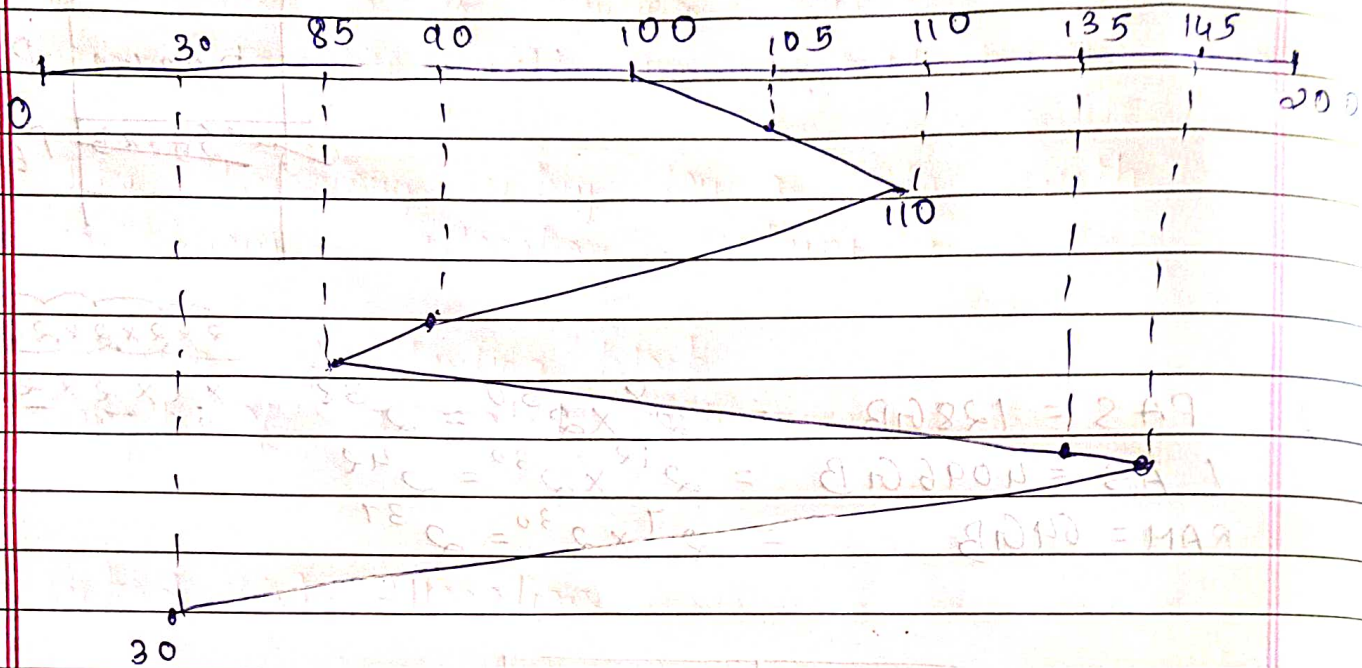 30 85 90 100 105 110 135 145
0 200
110
30